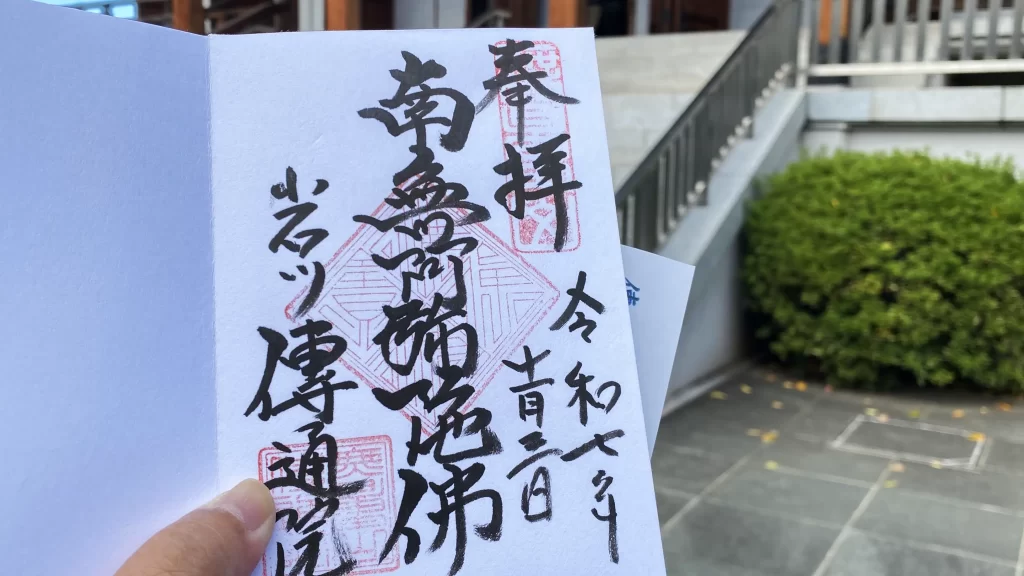 奉拝
令和七年
十一月三日
南無阿弥陀佛
小石川
傳通院